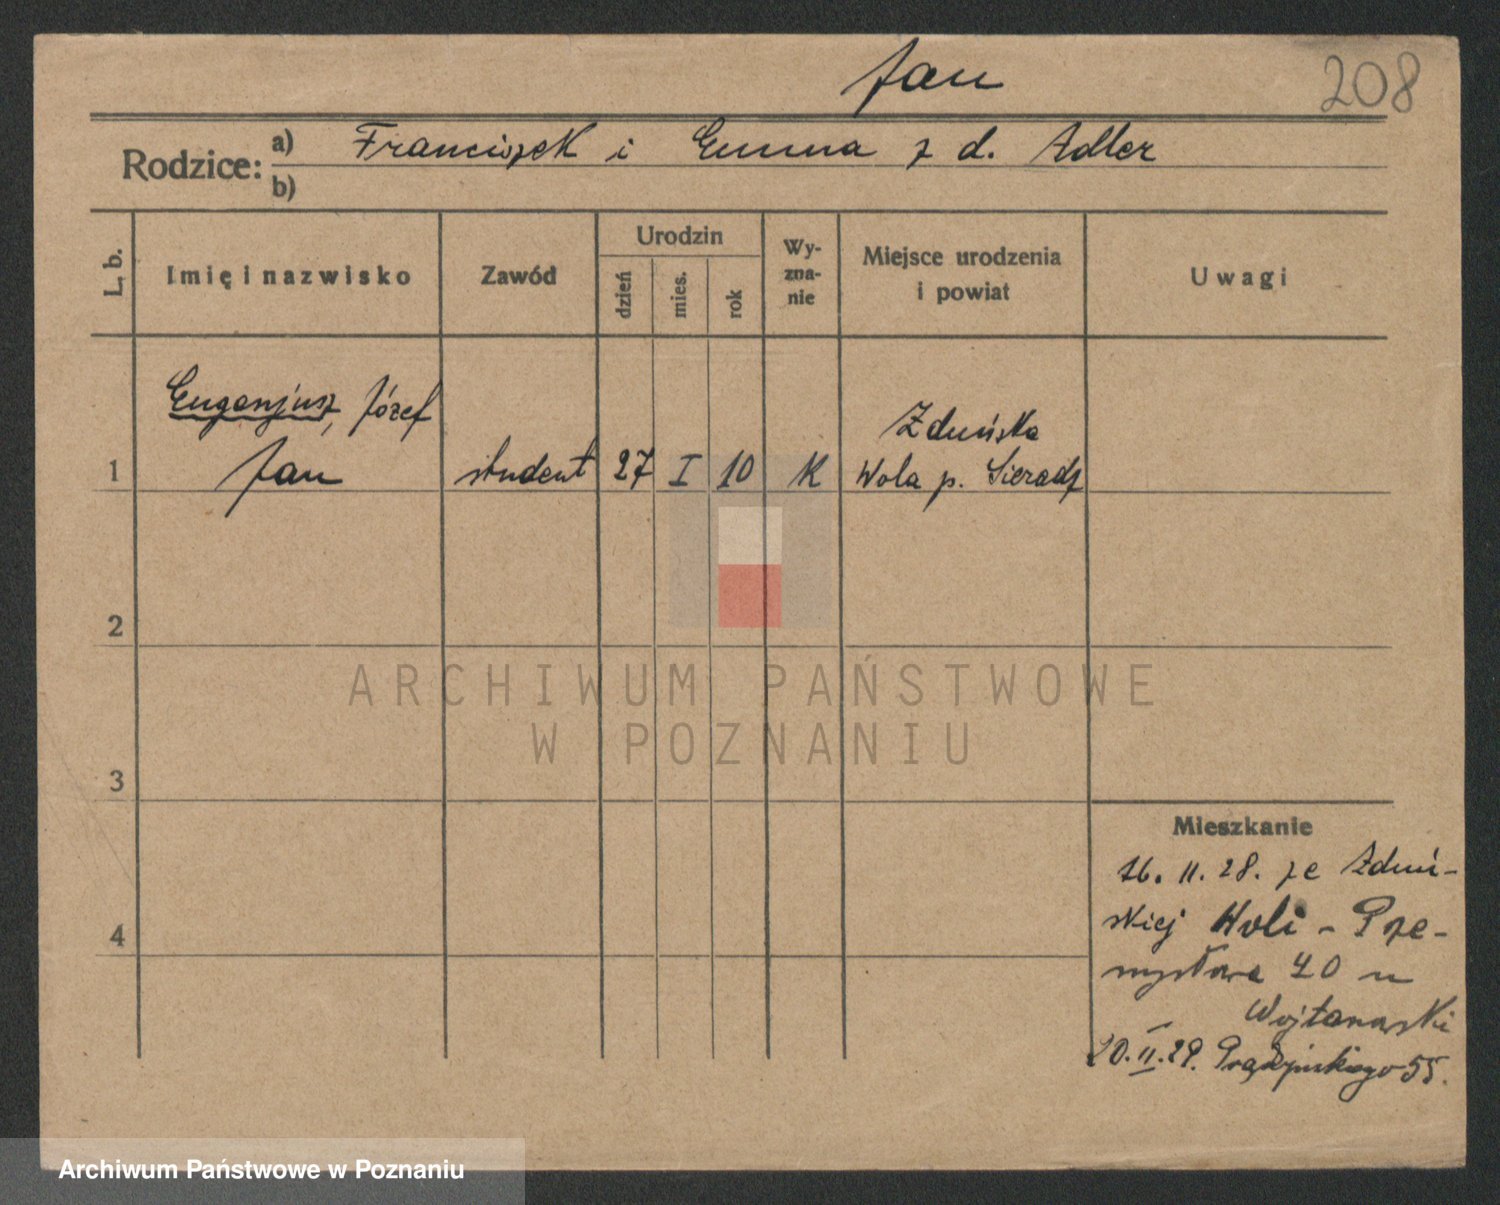 Jan 208
Rodzice: a) Franciszek i Emma z d. Adler
b)
L. b. Imię i nazwisko Zawód Urodzin dzień mies. rok Wy-zna-nie Miejsce urodzenia i powiat Uwagi
Eugenjusz, Józef Zduńska
1 Jan student 27 I 10 K Wola p. Sieradz
2
3
4
Mieszkanie
16. II. 28. ze Zduń-
skiej Woli - Prze-
mysłowa 40 u
20. II. 29. Prądzyńskiego 55.
ARCHIWUM PAŃSTWOWE
W POZNANIU
Archiwum Państwowe w Poznaniu